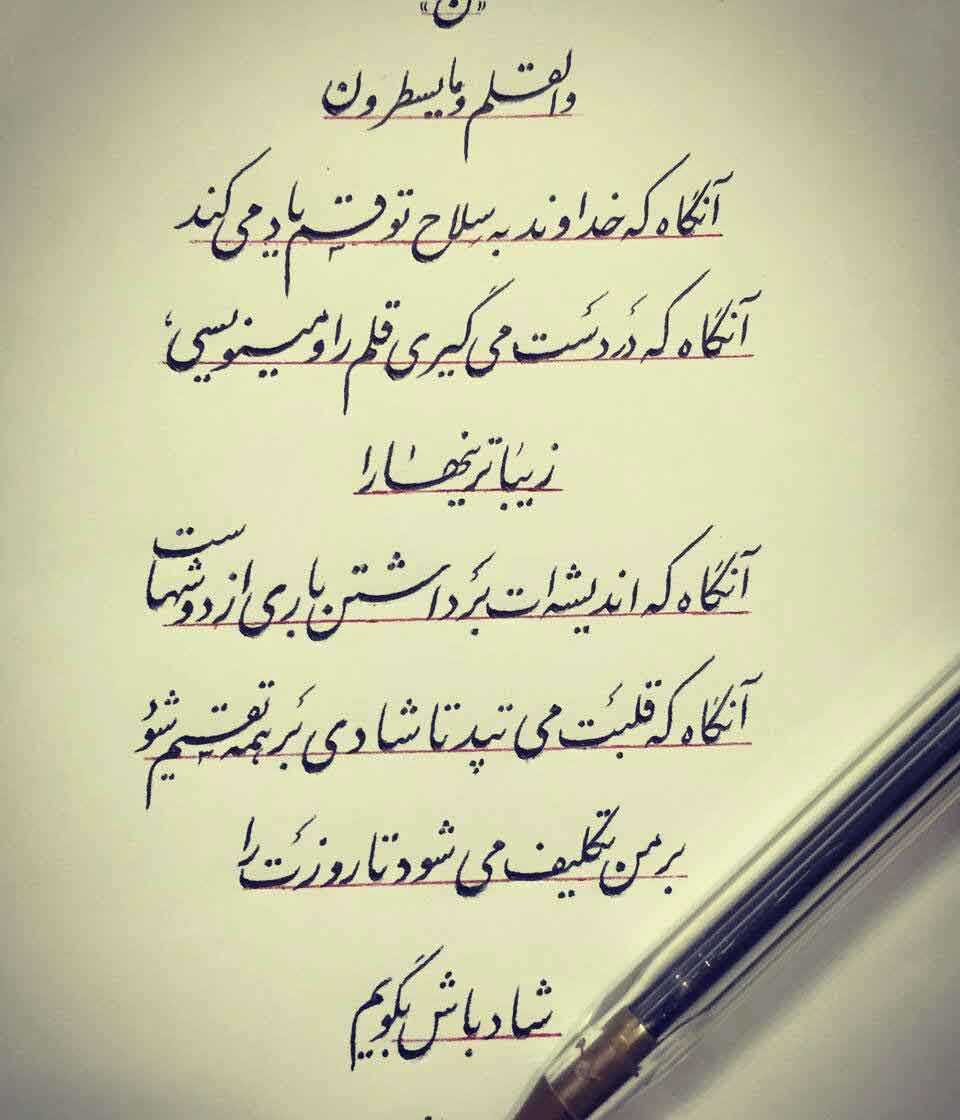 «ن»
والقلم و ما یسطرون
آنگاه که خداوند به سلاح تو قسم یاد می کند
آنگاه که در دست می گیری قلم را و مینویسی؛
زیباترینها را
آنگاه که اندیشه ات برداشتن باری از دوشهاست
آنگاه که قلبت می تپد تا شادی بر همه تقسیم شود
بر من تکلیف می شود تا روزت را
شادباش بگویم